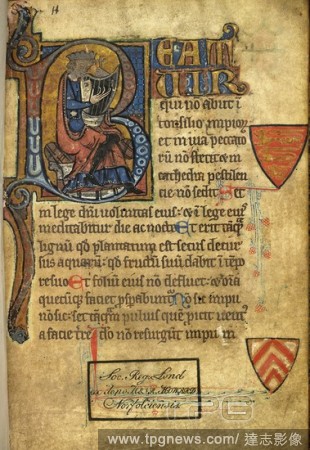 BEAT
UIR
qui nõ abiit ĩ
consilio impioꝝ
et in uia peccato
rũ nõ stetit: et ĩ
cathedra pestilen
cie nõ sedit. Set
in lege dñi uoluntas eius: et ĩ lege eius
meditabitur die ac nocte. Et erit tãqͣ
lignũ qd plantatum est secus decur
sus aquarũ: qd fructũ suũ dabit ĩ tẽpo
re suo. Et foliũ eius nõ defluet: et oĩa
quecũqꝫ faciet Nõ sic impii
nõ sic: set tãqͣ puluis quẽ uent9
a facie tre. Ideo nõ resurgũt impii in
Soc. Reg. Lond
ex dono HENR. HOWARD
Norfolciensis.
www.tpgnews.com/達志影像